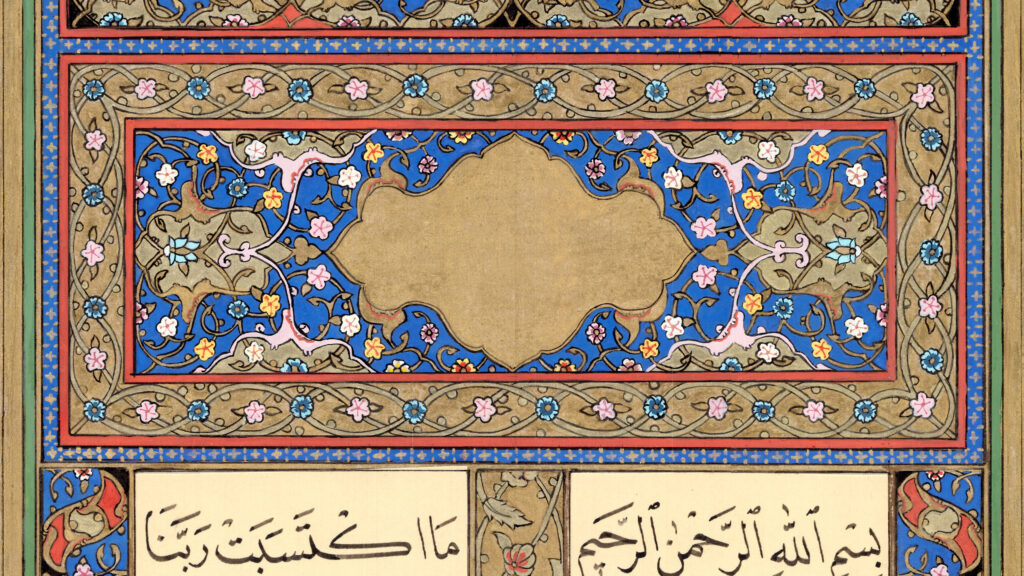 بِسْمِ ٱللَّهِ ٱلرَّحْمٰنِ ٱلرَّحِيمِ
مَا اكْتَسَبَتْ رَبَّنَا